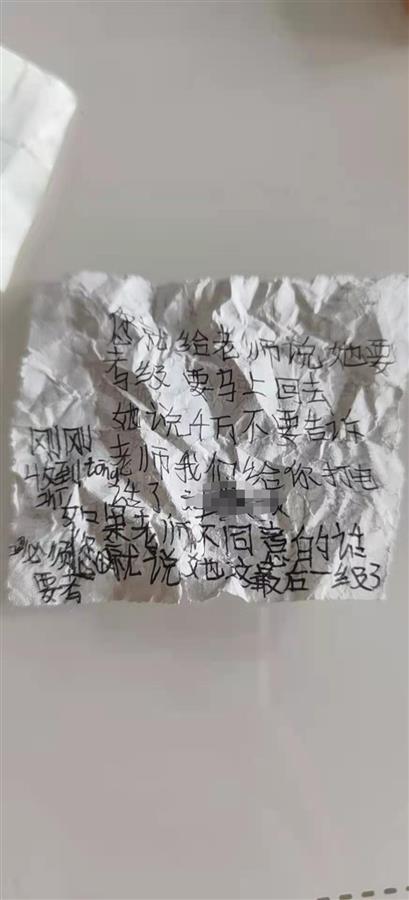 就给老师说她要
考级 要马上回去
她说4万不要告诉
老师我们给你打电
话了
如果老师不同意的话
就说她这最后一级了
刚刚
收到tong
必须
要考